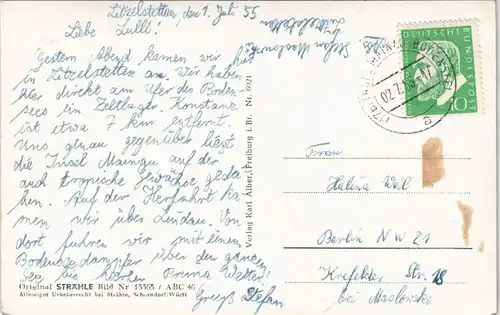 Litzelstetten, den 1. Juli 55
Liebe Lulli!
Gestern abend kamen wir hier
in Litzelstetten an. Wir haben
hier direkt am Ufer des Boden-
sees ein Zeltlager. Konstanz
ist etwa 7 km entfernt.
Uns genau gegenüber liegt
die Insel Mainau auf der
auch tropische Gewächse gedei-
hen. Auf der Herfahrt ka-
men wir über Lindau. Von
dort fuhren wir mit einem
Bodenseedampfer über den ganzen
See bis hierher. Prima Wetter!
Gruß Stefan
Original STRÄHLE Bild Nr 13365 / ABC 46
Alleiniger Urheberrecht bei Strähle, Schorndorf/Württ
Verlag Karl Alber, Freiburg i. Br. Nr. 6921
Stefan Maslowski
Litzelstetten
DEUTSCHE BUNDESPOST
10
a
Frau
Halina Weil
Berlin NW 21
Krefelder Str. 18
bei Maslowski